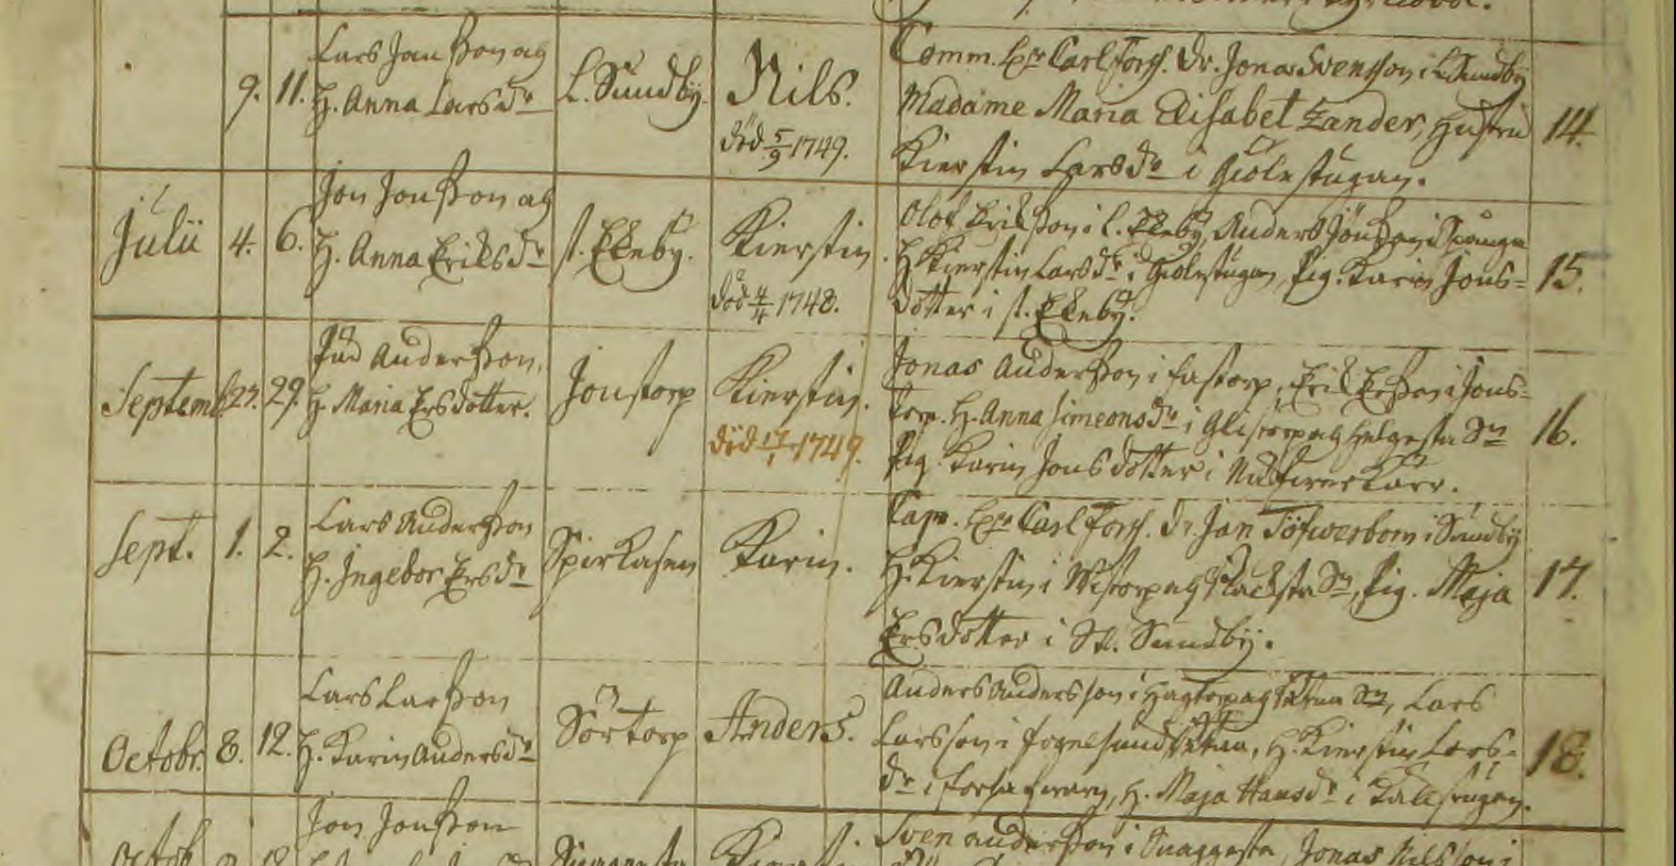 9. 11. Lars Jonsson och
H. Anna Larsdr
L. Sundby.
Nils.
död 5/9 1749.
Comm. Carl Forss. Dr. Jonas Svensson i L. Sundby
Madame Maria Elisabet Zander, Hustru
Kierstin Larsdr i Giölestugan.
14.
Julii 4. 6. Jon Jonsson och
H. Anna Eriksdr
st. Ekeby.
Kierstin.
död 4/4 1748.
Olof Eriksson i l. Ekeby, Anders Jönsson i
H. Kierstin Larsdr i Giölestugan, Pig. Karin Jons=
dotter i st. Ekeby.
15.
Septemb. 27. 29. Pär Andersson.
H. Maria Ersdotter.
Jonstorp
Kierstin.
död 17/1 1749.
Jonas Andersson i Fastorp, Erik Ersson i Jons=
torp. H. Anna Simeonsdr i Glistorp och Helgesta Sn
Pig. Karin Jonsdotter i
16.
Sept. 1. 2. Lars Andersson
H. Ingebor Ersdr
Spirkasen
Karin.
Capt. Carl Forss. Dr Jan Töfwerbom i Sundby
H. Kierstin i Wistorp och Sn, Pig. Maja
Ersdotter i St. Sundby.
17.
Octobr. 8. 12. Lars Larsson
H. Karin Andersdr
Sörtorp
Anders.
Anders Andersson i Hagtorp och Sn, Lars
Larsson i Fogelsund H. Kierstin Lars=
dr i Forssa H. Maja Hansdr i
18.
Octob. Jon Jonsson
Sven Andersson i Snaggesta, Jonas Nilsson i